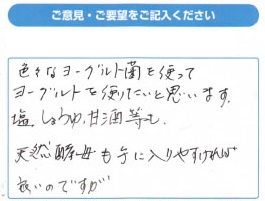 ご意見・ご要望をご記入ください
色々なヨーグルト菌を使って
ヨーグルトを作りたいと思います。
塩、しょうゆ、甘酒等も、
天然酵母も手に入りやすければ
良いのですが